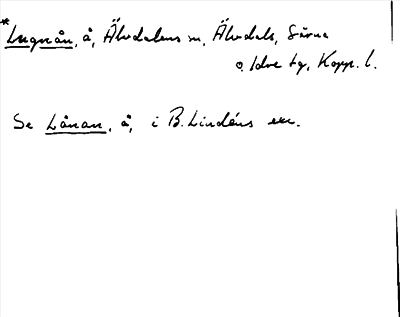 *Lugnån, å, Älvdalens m, Älvdals, Särna
o. Idre tg, Kopp. l.
Se Lånan, å, i B. Lindéns exc.